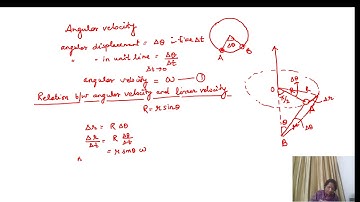 Angular velocity
angular displacement = Δθ in time Δt
" " in unit line = Δθ/Δt
Δt→0
angular velocity = ω — ①
Relation b/w angular velocity and linear velocity
R = r sinθ
Δr = R Δθ
Δr/Δt = R Δθ/Δt
= r sinθ ω
Δθ
A B
Δθ
O π/2 R Δr
A
θ r Δθ
B